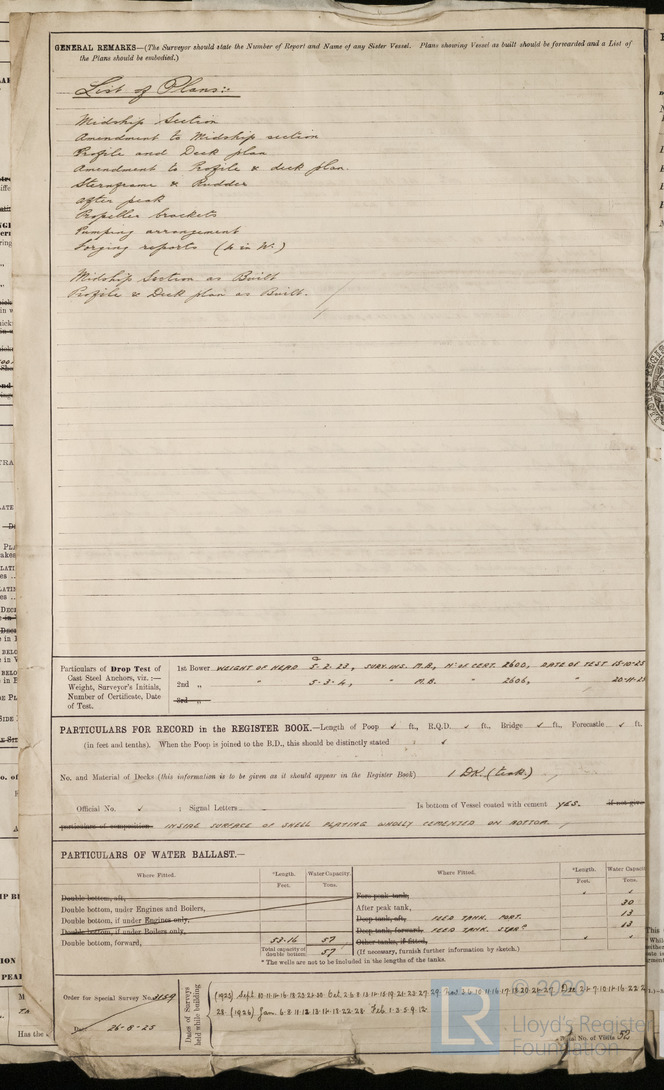 GENERAL REMARKS—(The Surveyor should state the Number of Report and Name of any Sister Vessel. Plans shewing Vessel as built should be forwarded and a List of
the Plans should be embodied.)
List of Plans:-
Midship Section
Amendment to Midship section
Profile and Deck plan
Amendment to Profile & deck plan.
Sternframe & Rudder
after peak
Propeller brackets
Pumping arrangement
Forging reports (4 in No.)
Midship Section as Built
Profile & Deck plan as Built.
Particulars of Drop Test of
Cast Steel Anchors, viz.:—
Weight, Surveyor's Initials,
Number of Certificate, Date
of Test.
1st Bower WEIGHT OF HEAD 5.2.23, SURV. INS. M.B, No OF CERT. 2600, DATE OF TEST 15-10-25
2nd „ " 5.3.4, " M.B. " 2606, " 20-11-25
3rd „
PARTICULARS FOR RECORD in the REGISTER BOOK.—Length of Poop ✓ ft., R.Q.D. ✓ ft., Bridge ✓ ft., Forecastle ✓ ft.
(in feet and tenths). When the Poop is joined to the B.D., this should be distinctly stated
No. and Material of Decks (this information is to be given as it should appear in the Register Book) 1 DK. (teak.)
Official No. ; Signal Letters Is bottom of Vessel coated with cement YES. if not give
particulars of composition. INSIDE SURFACE OF SHELL PLATING WHOLLY CEMENTED ON BOTTOM
PARTICULARS OF WATER BALLAST.—
Where Fitted. *Length. Water Capacity. Where Fitted. *Length. Water Capacity
Feet. Tons. Feet. Tons.
Double bottom, aft, Fore peak tank,
Double bottom, under Engines and Boilers, After peak tank, 30
Double bottom, if under Engines only, Deep tank, aft, FEED TANK. PORT. 13
Double bottom, if under Boilers only, Deep tank, forward, FEED TANK. STARD 13
Double bottom, forward, 53.16 57 Other tanks, if fitted,
Total capacity of double bottom 57 (If necessary, furnish further information by sketch.)
* The wells are not to be included in the lengths of the tanks.
Order for Special Survey No. 4159
Date 26-8-25
Dates of Surveys held while building
(1926) Jan. 6.8.11.12.13.14.18.22.28. Feb. 1.3.5.9.12.
Total No. of Visits 52
© 2020
LR
Lloyd's Register
Foundation